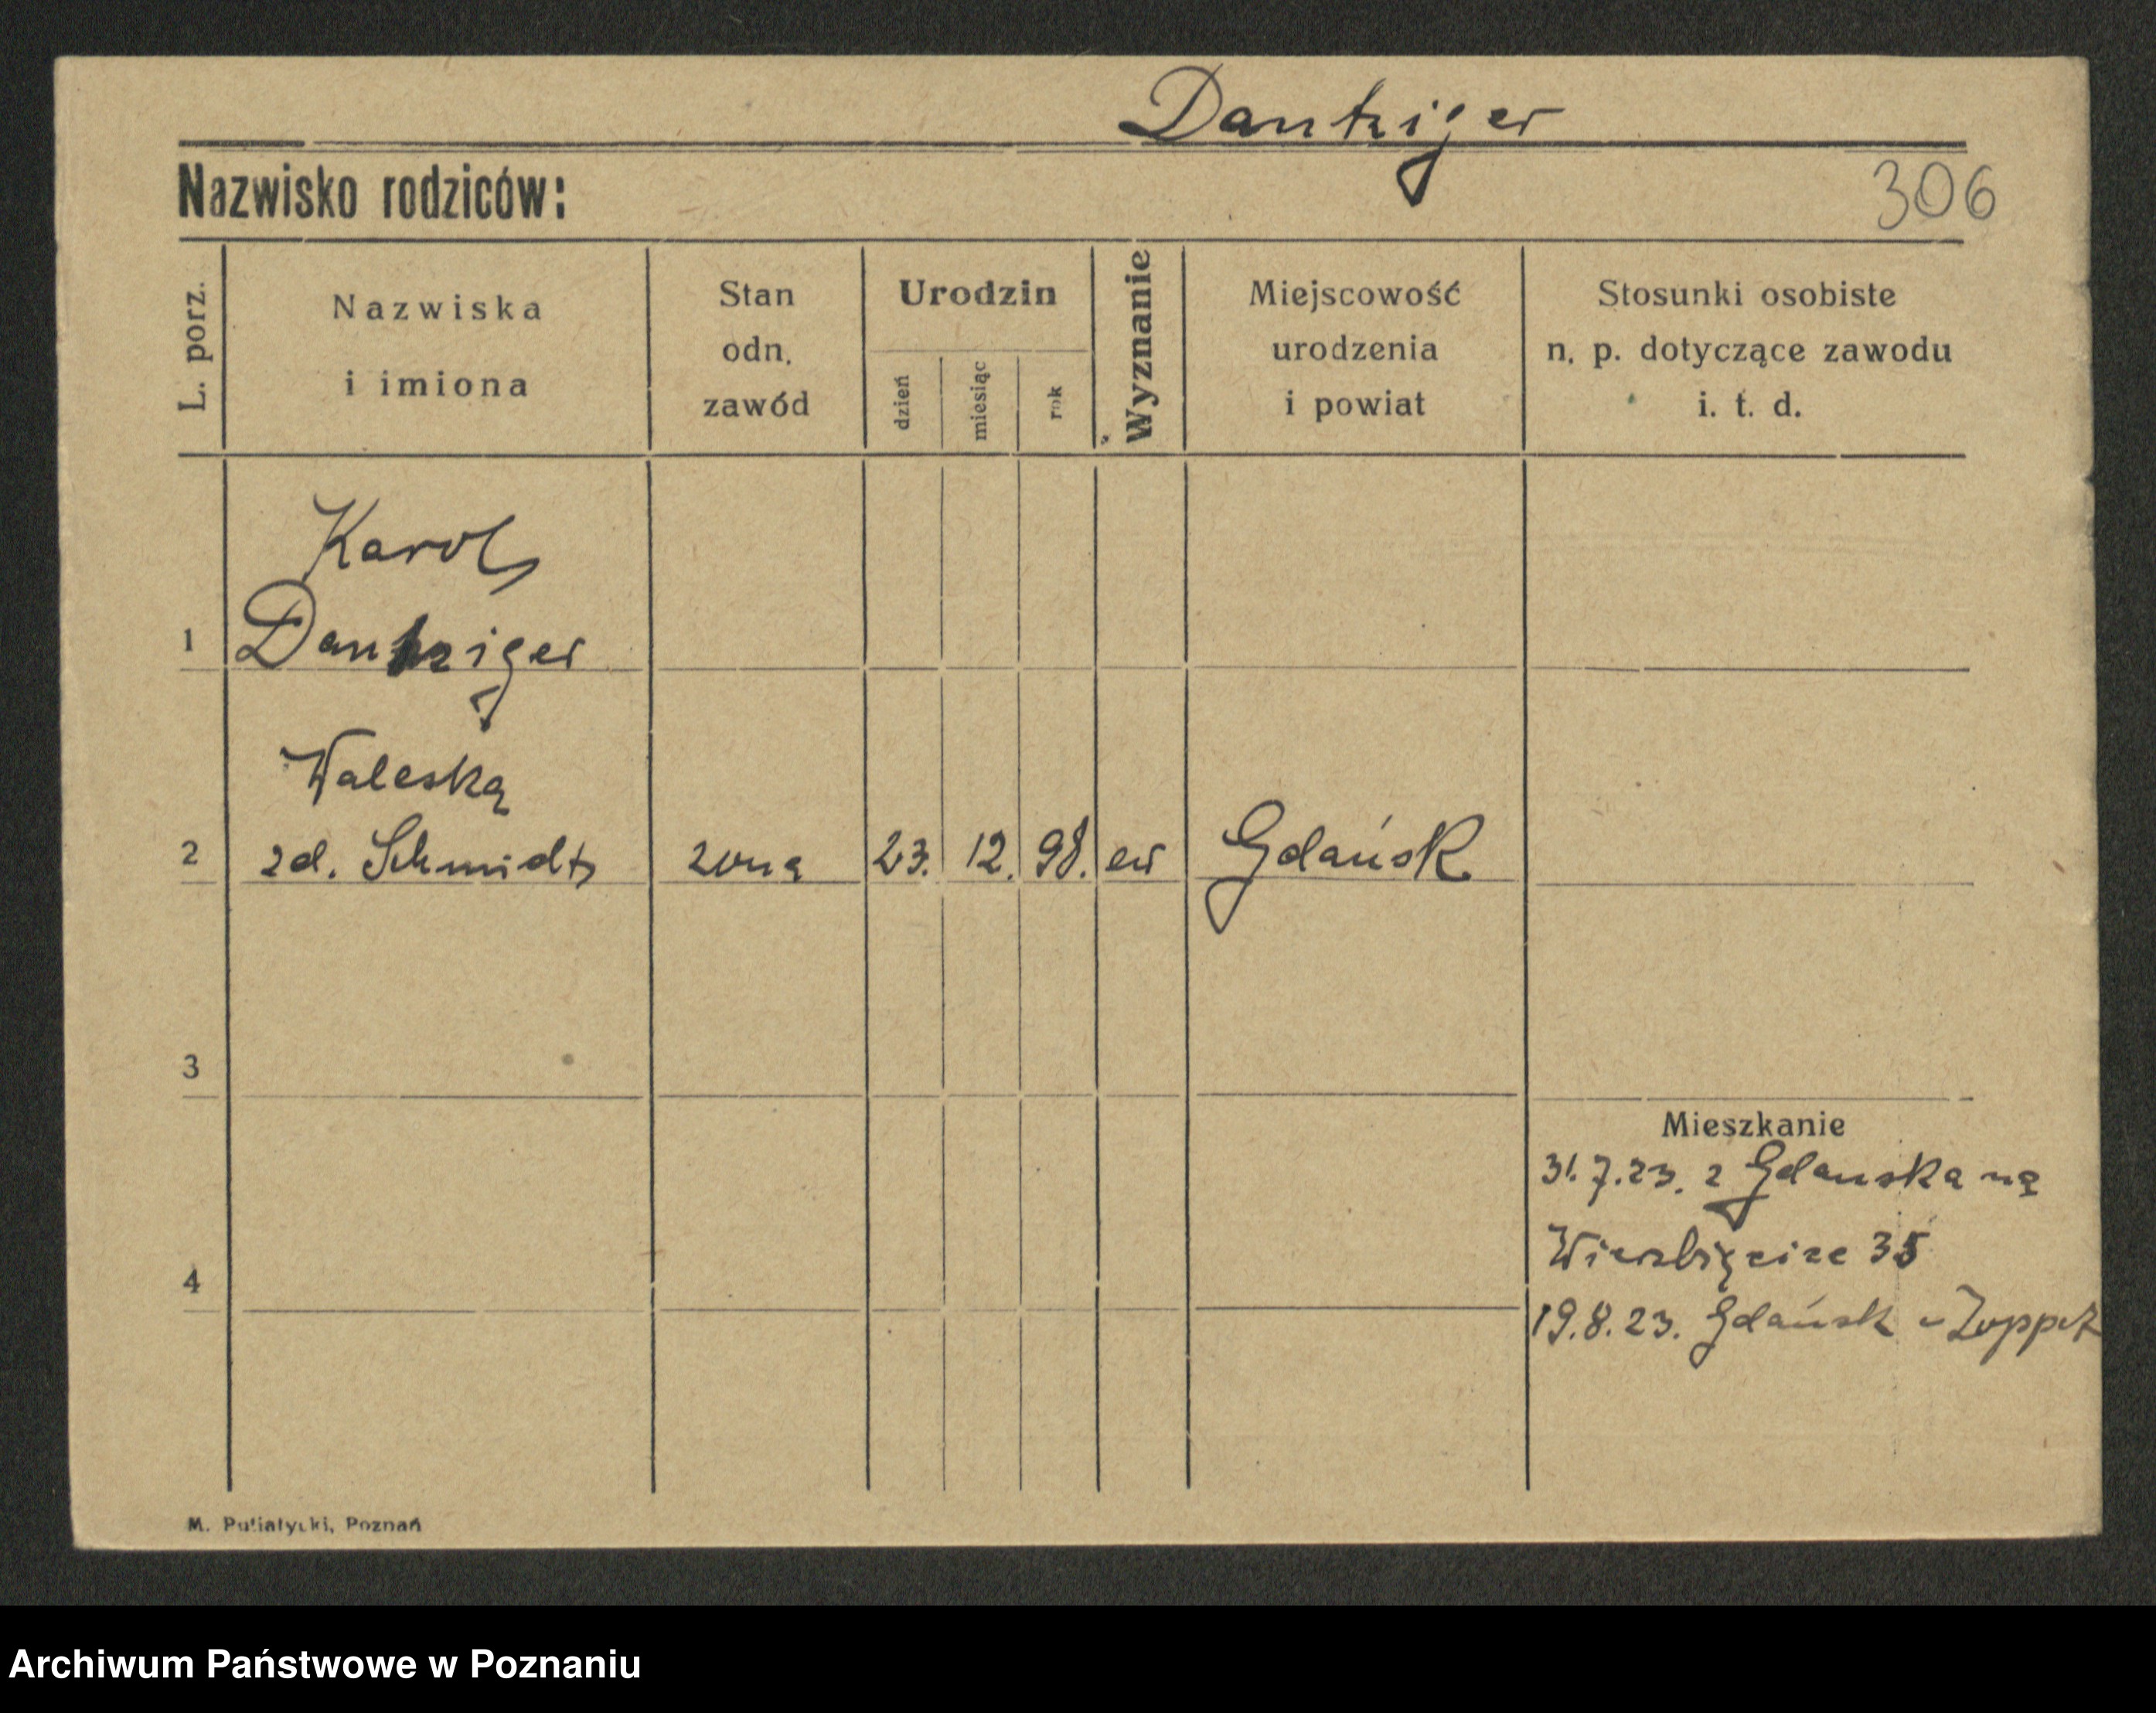 Dantziger
Nazwisko rodziców:
306
L. porz.
Nazwiska
i imiona
Stan
odn.
zawód
Urodzin
dzień
miesiąc
rok
Wyznanie
Miejscowość
urodzenia
i powiat
Stosunki osobiste
n. p. dotyczące zawodu
i. t. d.
Karol
1 Dantziger
Waleska
2 zd. Schmidt żona 23. 12. 98. ew Gdańsk
3
Mieszkanie
31.7.23. z Gdanska na
4 Wierzbięcice 35
19.8.23. Gdańsk - Zoppot
M. Putiatycki, Poznań
Archiwum Państwowe w Poznaniu